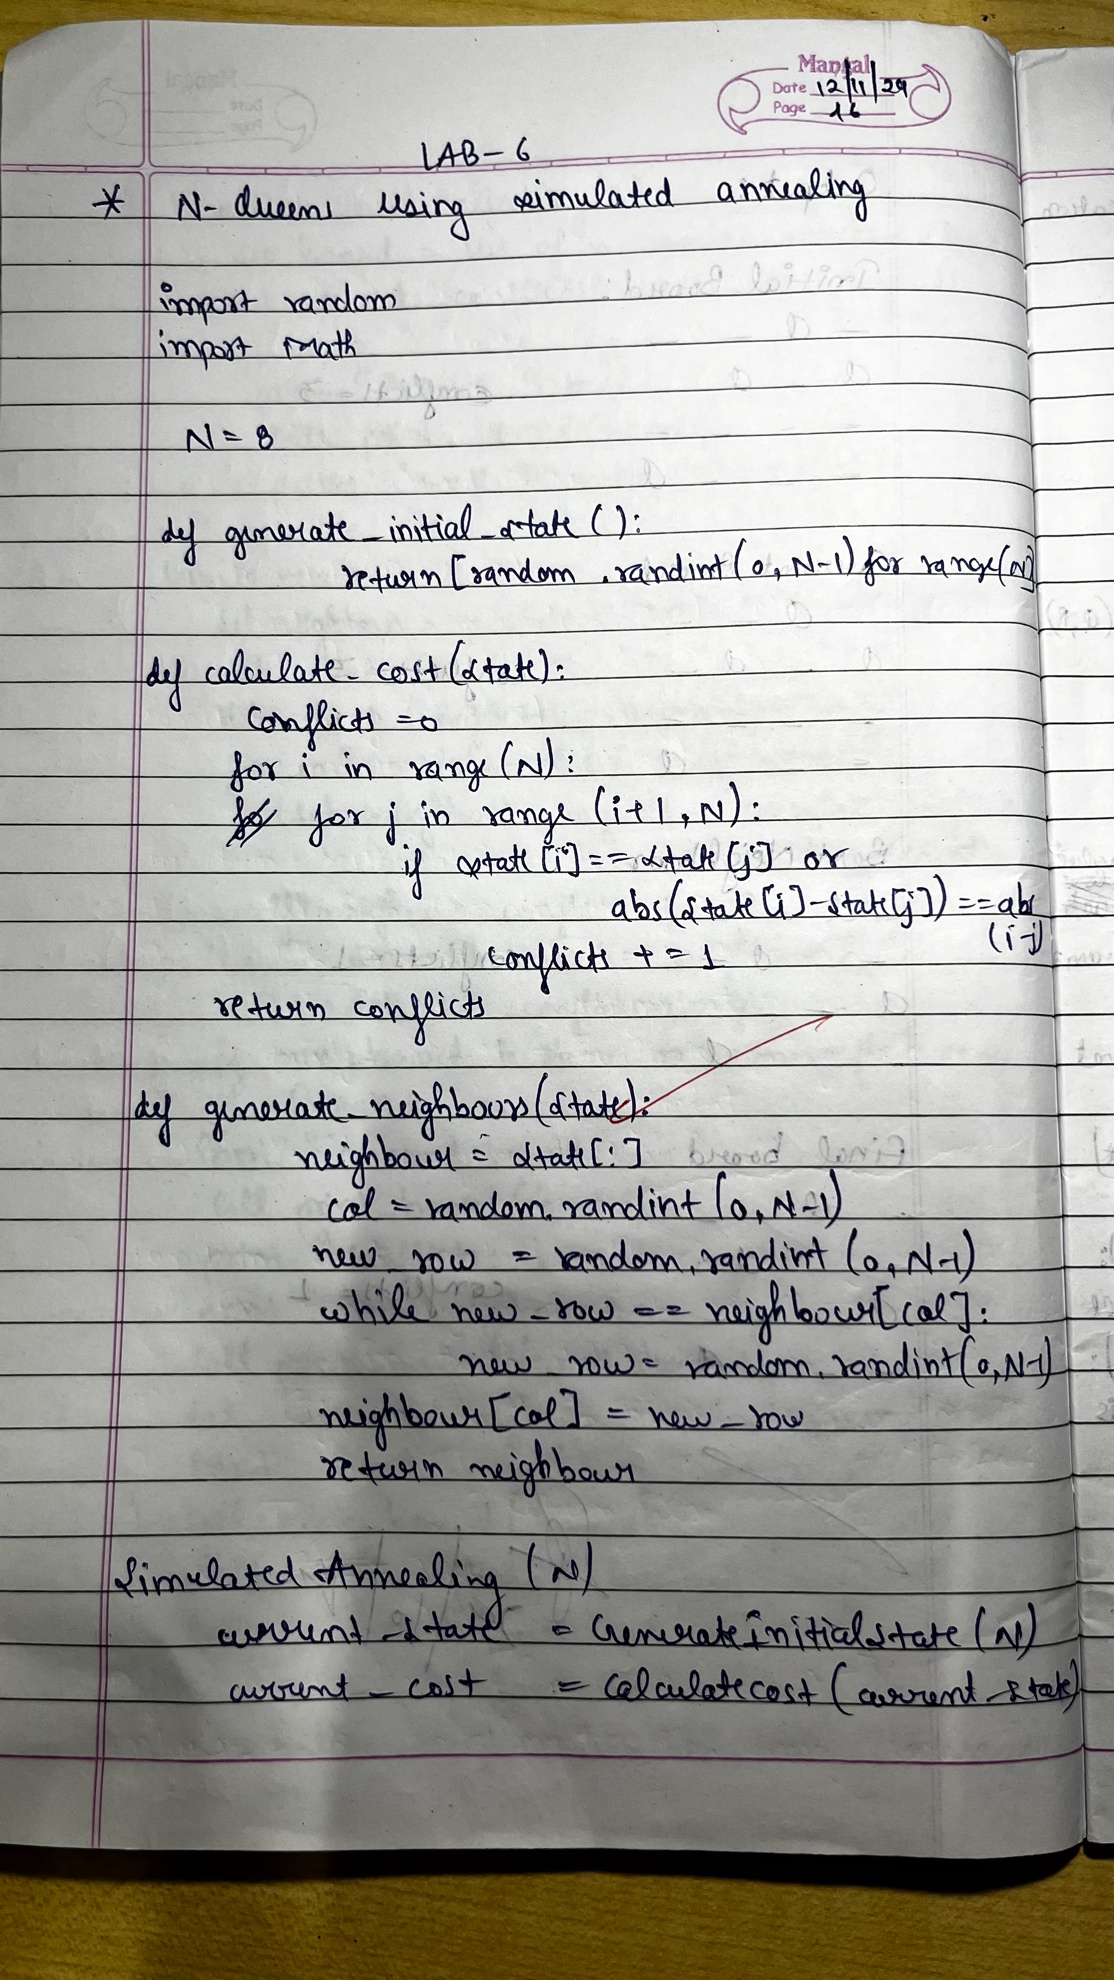 Mangal
Date 12/11/24
Page 16
LAB-6
* N-Queens using simulated annealing
import random
import math
N = 8
def generate_initial_state():
return [random.randint(0, N-1) for range(N)]
def calculate_cost(state):
conflicts = 0
for i in range(N):
for j in range (i+1, N):
if state[i] == state[j] or
abs(state[i]-state[j]) == abs
(i-j)
conflicts += 1
return conflicts
def generate_neighbours(state):
neighbour = state[:]
col = random.randint(0, N-1)
new_row = random.randint(0, N-1)
while new_row == neighbour[col]:
new_row = random.randint(0, N-1)
neighbour[col] = new_row
return neighbour
Simulated Annealing (N)
current_state = GenerateInitialState(N)
current_cost = Calculatecost(current_state)